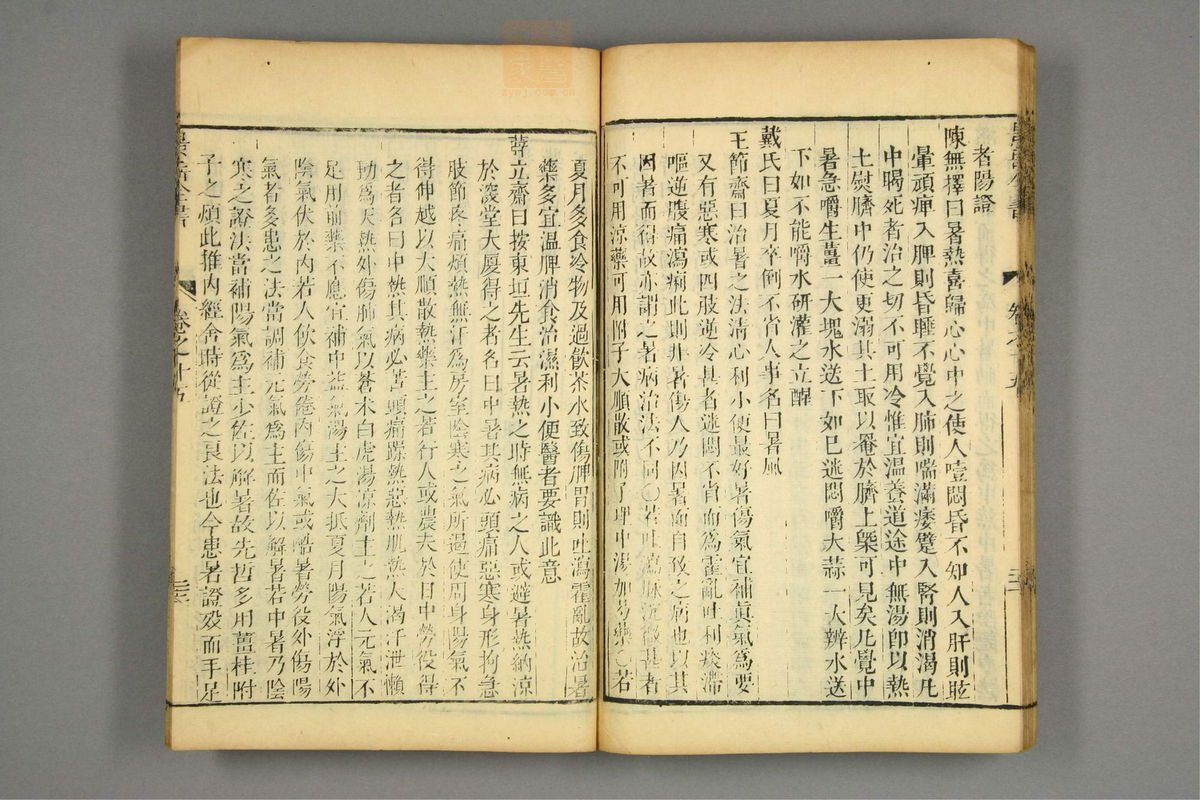 者陽證
陳無擇曰暑熱喜歸心心中之使人噎悶昏不知人入肝則眩
暈頑痺入脾則昏睡不覺入肺則喘滿痿躄入腎則消渴凡
中暍死者治之切不可用冷惟宜溫養道途中無湯即以熱
土熨臍中仍使更溺其土取以罨於臍上槩可見矣凡覺中
暑急嚼生薑一大塊水送下如已迷悶嚼大蒜一大辨水送
下如不能嚼水研灌之立醒
戴氏曰夏月卒倒不省人事名曰暑風
王節齋曰治暑之法清心利小便最好暑傷氣宜補眞氣爲要
又有惡寒或四肢逆冷甚者迷悶不省而爲霍亂吐利痰滯
嘔逆腹痛瀉痢此則非暑傷人乃因暑而自致之病也以其
因暑而得故亦謂之暑病治法不同〇若吐瀉脉沉微甚者
不可用涼藥可用附子大順散或附子理中湯加芍藥〇若
夏月多食冷物及過飲茶水致傷脾胃則吐瀉霍亂故治暑
藥多宜溫脾消食治濕利小便醫者要識此意
薛立齋曰按東垣先生云暑熱之時無病之人或避暑熱納涼
於深堂大厦得之者名曰中暑其病必頭痛惡寒身形拘急
肢節疼痛煩熱無汗爲房室陰寒之氣所遏使周身陽氣不
得伸越以大順散熱藥主之若行人或農夫於日中勞役得
之者名曰中熱其病必苦頭痛躁熱惡熱肌熱大渴汗泄懶
動爲天熱外傷肺氣以蒼朮白虎湯涼劑主之若人元氣不
足用前藥不應宜補中益氣湯主之大抵夏月陽氣浮於外
陰氣伏於內若人飲食勞倦內傷中氣或酷暑勞役外傷陽
氣者多患之法當調補元氣爲主而佐以解暑若中暑乃陰
寒之證法當補陽氣爲主少佐以解暑故先哲多用薑桂附
子之類此推內經舍時從證之良法也今患暑證歿而手足
卷之十五